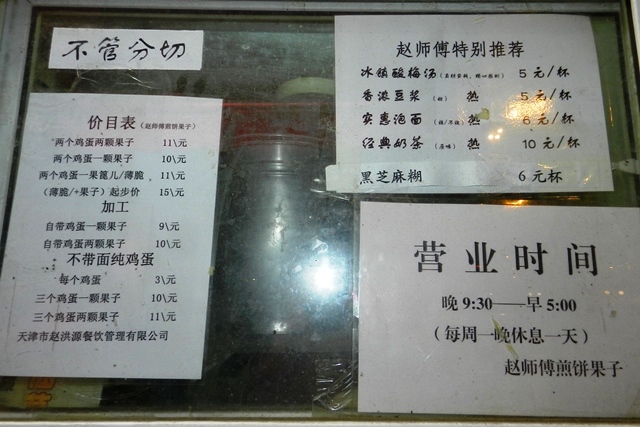 不管分切
价目表（赵师傅煎饼果子）
两个鸡蛋两颗果子 11\元
两个鸡蛋一颗果子 10\元
两个鸡蛋一果篦儿/薄脆 11\元
（薄脆/+果子）起步价 15\元
加工
自带鸡蛋一颗果子 9\元
自带鸡蛋两颗果子 10\元
不带面纯鸡蛋
每个鸡蛋 3\元
三个鸡蛋一颗果子 10\元
三个鸡蛋两颗果子 11\元
天津市赵洪源餐饮管理有限公司
赵师傅特别推荐
冰镇酸梅汤 5 元/杯
香浓豆浆 热 5 元/杯
实惠泡面 热 6 元/杯
经典奶茶（原味）热 10 元/杯
黑芝麻糊 6 元杯
营业时间
晚 9:30——早 5:00
（每周一晚休息一天）
赵师傅煎饼果子